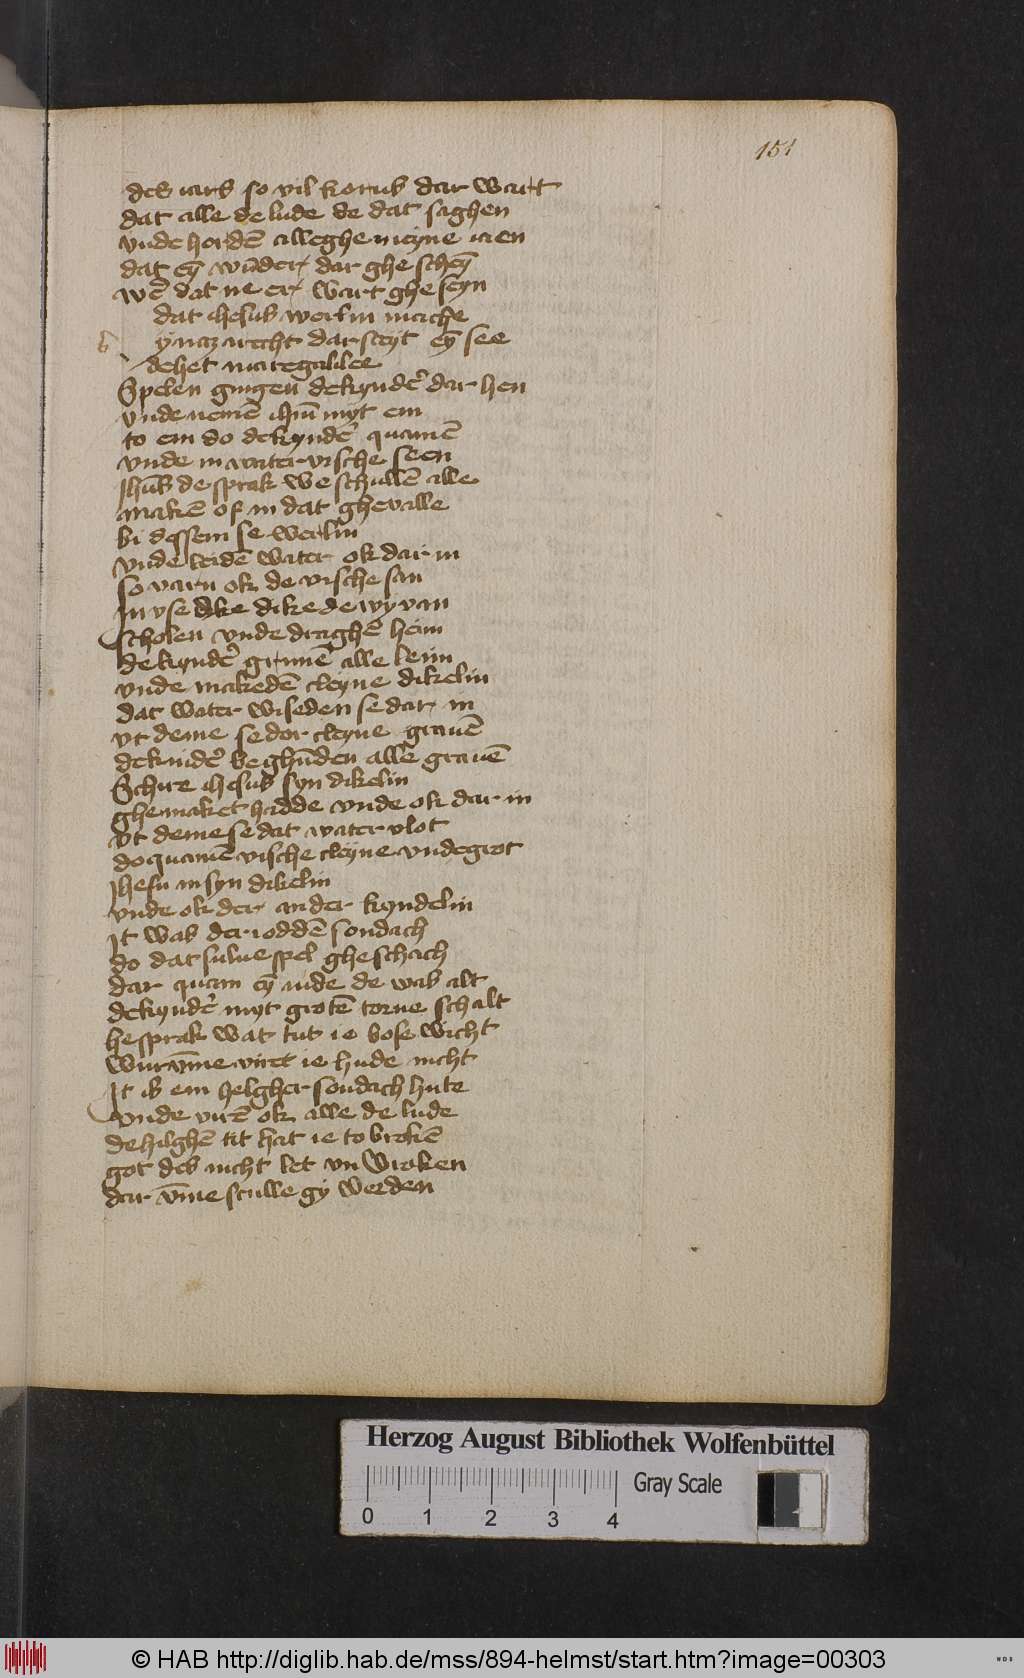 151
des iars so vil korns dar wart
dat alle de lude de dat saghen
vnde hordē alleghemeyne ieen
dat eȳ wūder dar gheschey̅
wē dat ne er wart gheseyn
dat ihesus werlin mache
ynazarecht dar steyt eȳ see
de het mare galilee
Spelen gingen de kyndē dar hen
vnde nemē ihm̄ myt em
to em do de kyndē quamē
vnde in water vische seen
Jhūs de sprak we schullē alle
makē of in dat ghevalle
bi dessem se werlin
vnde leidē water ok dar in
so varn ok de vische san
in vse dike de wy van
scholen vnde draghē heim
de kyndē grauē alle leim
vnde makedē cleyne dikelin
dat water wiseden se dar in
vt deme se dor cleyne grauē
de kindē beghūden alle grauē
Schire ihesus syn dikelin
ghemaket hadde vnde ok dar in
vt deme se dat water vlot
do quamē vische cleyne vnde grot
Jhesu in syn dikelin
vnde ok der ander kyndelin
Jt was der ioddē sondach
do dat sulue spel gheschach
dar quam eȳ iude de was alt
de kyndē myt grotē torne schalt
he sprak wat tut ie bose wicht
wurv̄me viret ie hude nicht
Jt is ein helgher sondach hute
vnde virē ok alle de lude
de hilghē tit hat ie to brokē
got des nicht let vn wroken
dar v̄me sculle gy werden
Herzog August Bibliothek Wolfenbüttel
0 1 2 3 4
Gray Scale
© HAB http://diglib.hab.de/mss/894-helmst/start.htm?image=00303